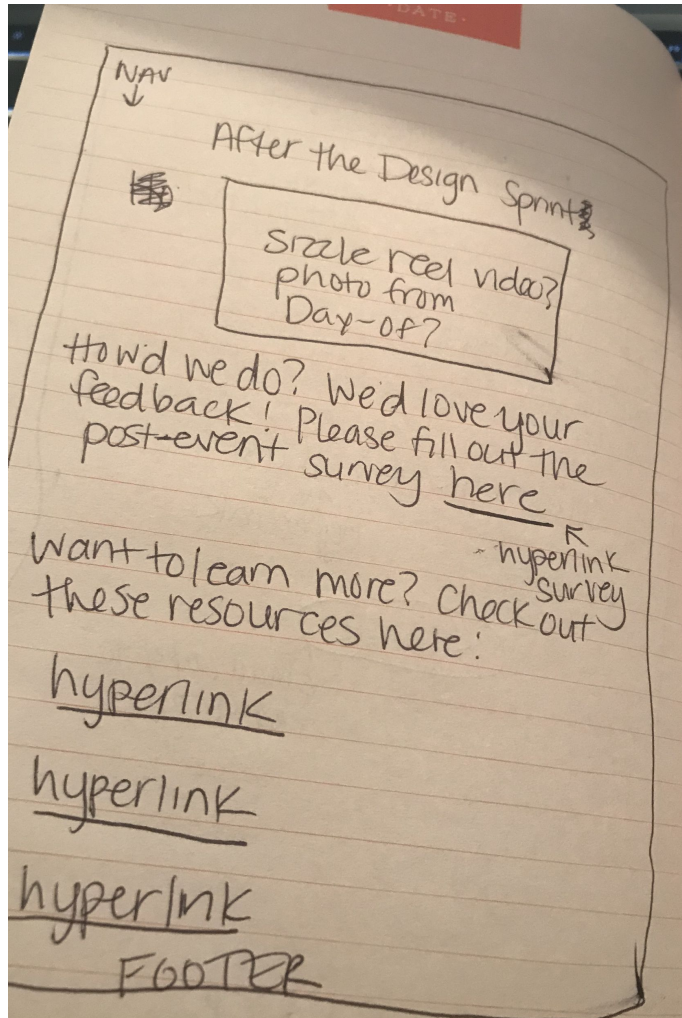 ·DATE·
NAV
After the Design Sprint
Sizzle reel video?
photo from
Day-of?
How'd we do? We'd love your
feedback! Please fill out the
post-event survey here
hyperlink
survey
Want to learn more? Check out
these resources here:
hyperlink
hyperlink
hyperlink
FOOTER